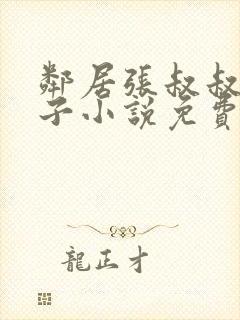 鄰居張叔叔
子小說免費
龍正才